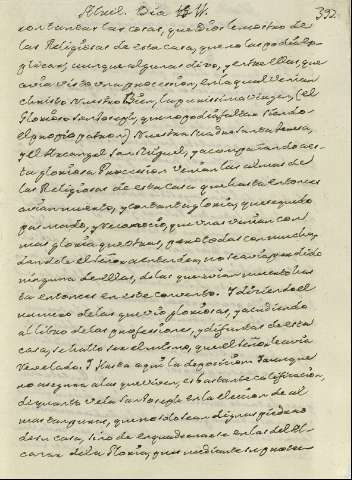 Abril. Dia 11. 392
con tantas las cosas, que Dios le mostro de
las Religiosas de esta casa, que no las podia ex-
plicar; aunque algunas dixo, y entre ellas, que
avia visto una procession, en la qual venian
christo Nuestro Bien, la purissima virgen, (el
Glorioso San Joseph, que no podia faltar siendo
el propio patron) Nuestra Madre Santa Teresa,
y el Archangel San Miguel, y acompañando es-
ta gloriosa Procession venian las almas de
las Religiosas de esta casa que hasta entonces
avian muerto, y con tanta gloria, que quedo
pasmada, y reconocio, que unas venian con
mas gloria que otras, pero todas con mucha,
dandole el Señor a entender, no se avia perdido
ninguna de ellas, de las que avian muerto has-
ta entonces en este convento. Y diziendo el
numero de las que vio gloriosas, y acudiendo
al libro de las professiones, y difuntas de esta
casa, se hallo ser el mismo, que el Señor le avia
revelado. Hasta aqui la deposicion. Y aunque
no asegura a las que viven, es bastante calificacion,
de quanto vela San Joseph en la eleccion de al-
mas tan puras, que no solo sean dignas piedras
de su casa, sino de enquadernarse en las del Al-
cazar de la Gloria, que mediante su protec-